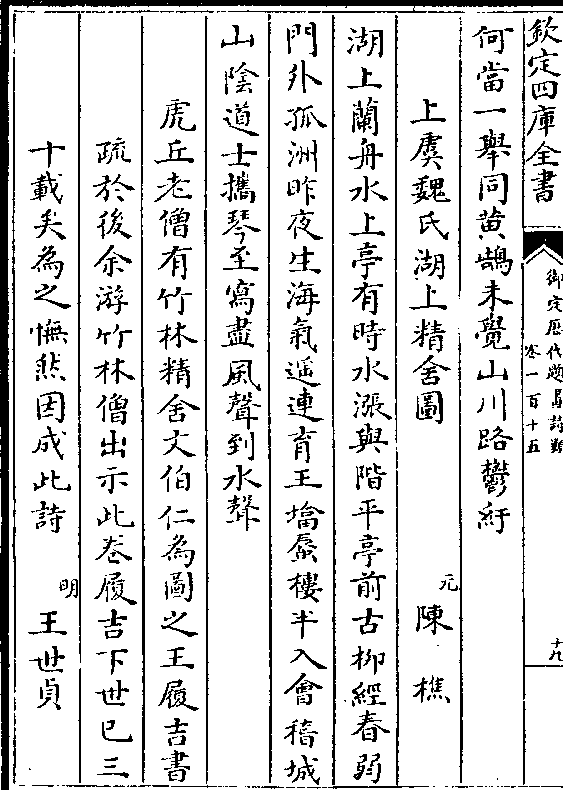 欽定四庫全書
御定歷代題畫詩類
卷一百十五
十九
何當一舉同黄鵠未覺山川路鬱紆
上虞魏氏湖上精舍圖
元 陳樵
湖上蘭舟水上亭有時水漲與階平亭前古柳經春弱
門外孤洲昨夜生海氣遥連育王墖蜃樓半入會稽城
山陰道士攜琴至寫盡風聲到水聲
虎丘老僧有竹林精舍文伯仁為圖之王履吉書
疏於後余游竹林僧出示此卷履吉下世已三
十載矣為之憮然因成此詩
明 王世貞